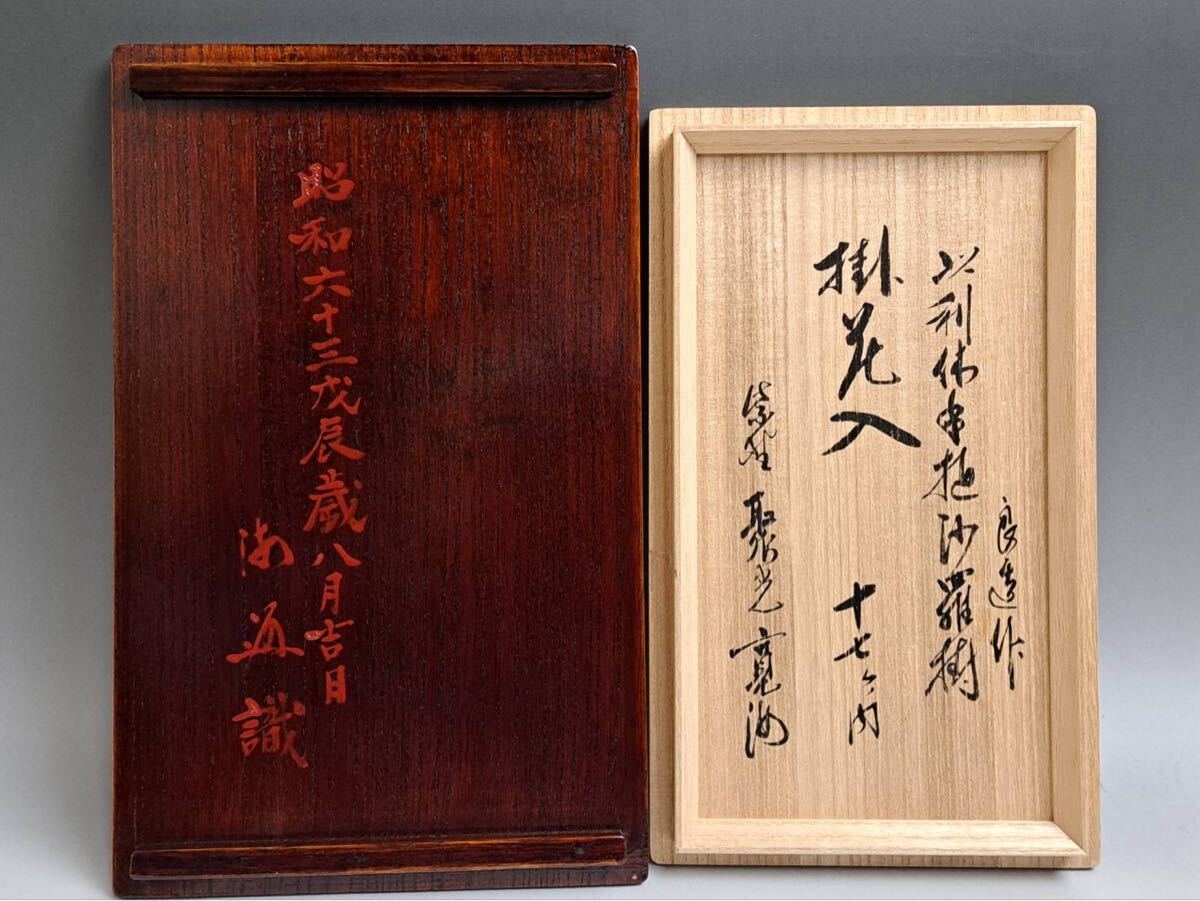 昭和六十三戊辰歳八月吉日
海
識
以利休
沙羅樹
良造作
掛花入
十七ヶ内
紫野 聚光 寛海